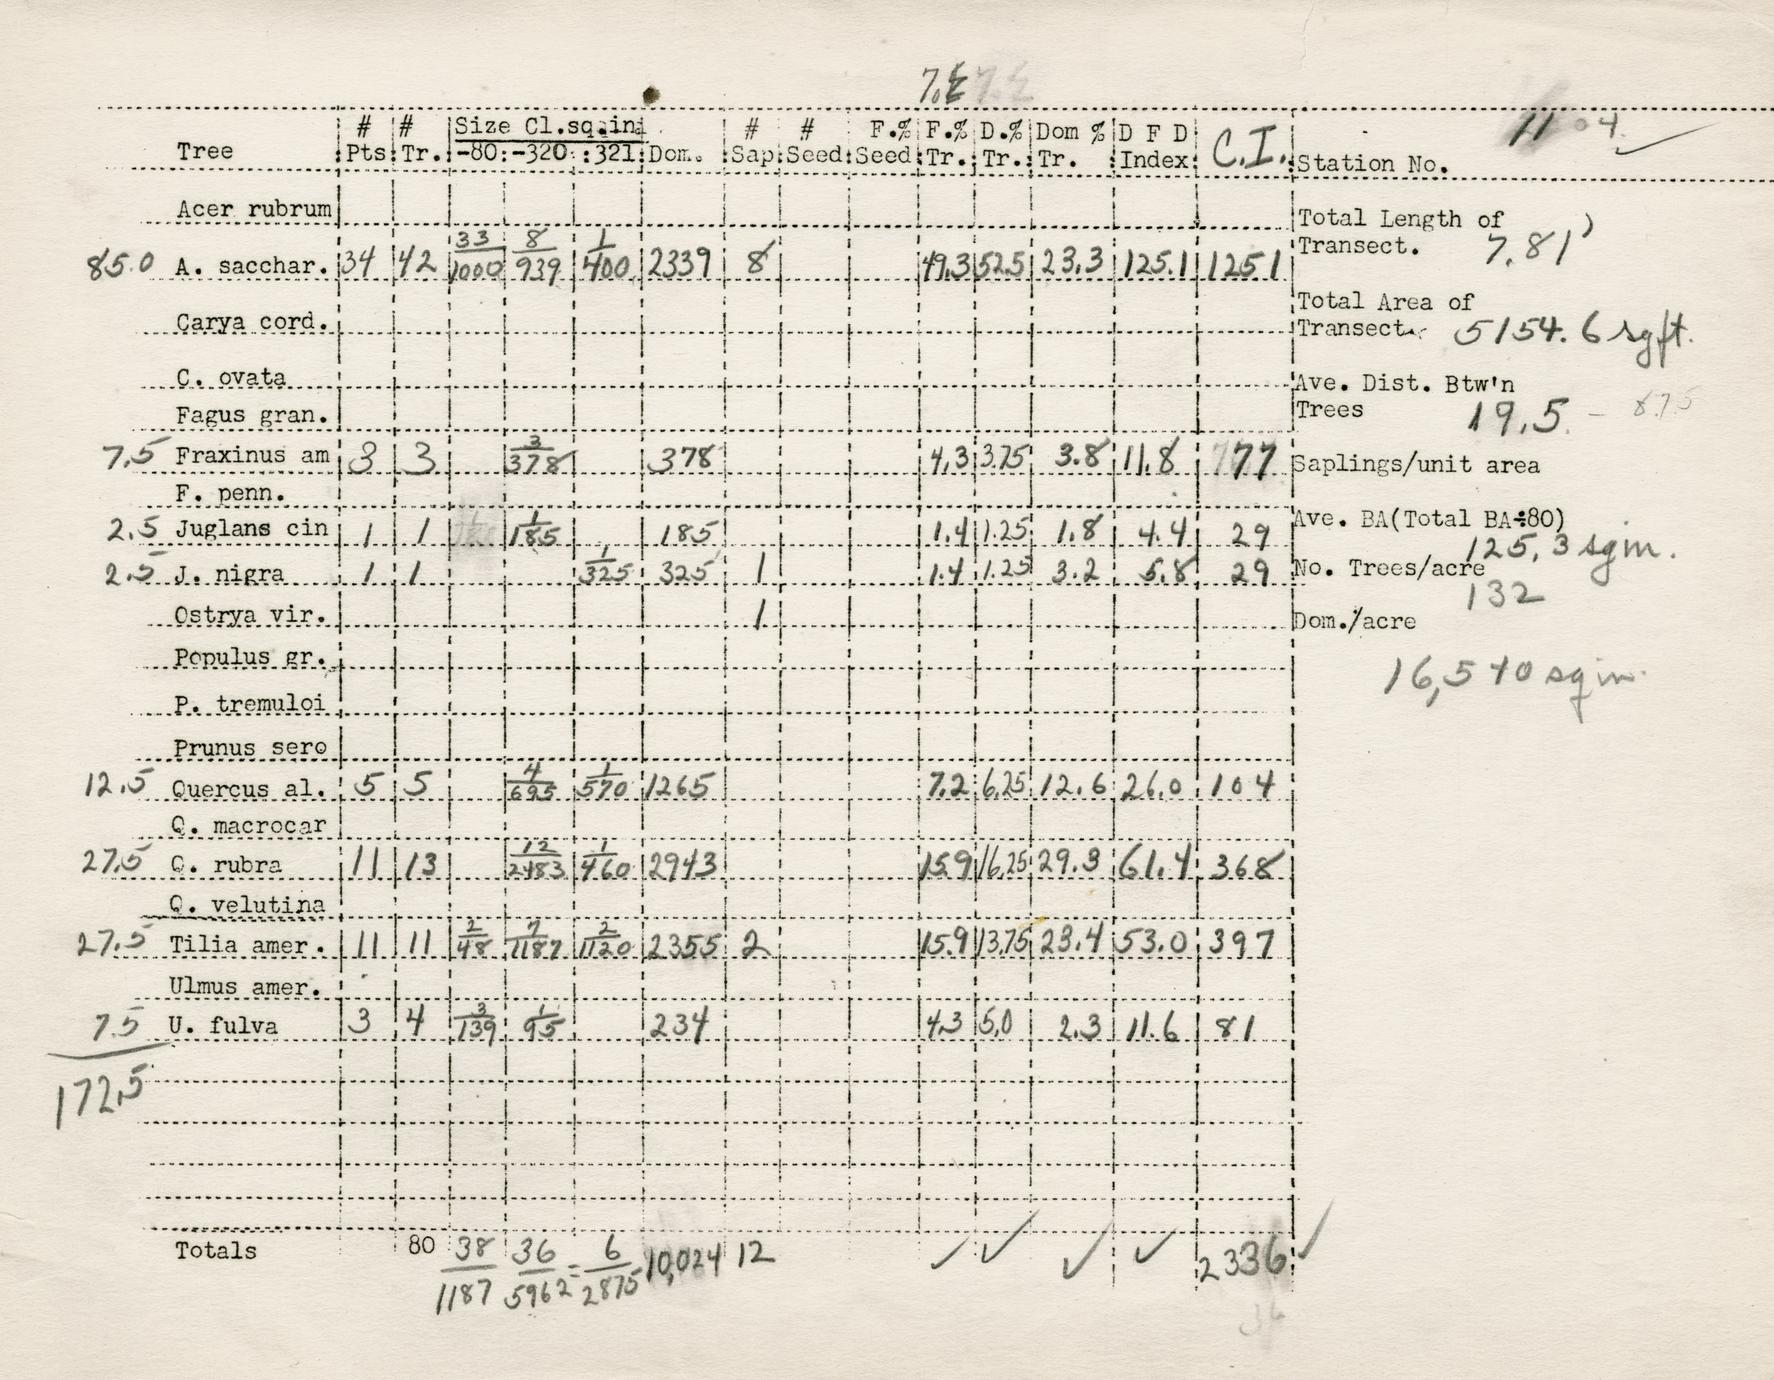 7.
Tree # Pts. # Tr. Size Cl.sq.in. -80: -320: :321: Dom. # Sap. # Seed: F.% Seed: F.% Tr. D.% Tr. Dom % Tr. D F D Index: C.I. Station No. 1104
Acer rubrum
85.0 A. sacchar. 34 42 33/1000 8/939 1/400 2339 8 49.3 52.5 23.3 125.1 1251
Carya cord.
C. ovata
Fagus gran.
7.5 Fraxinus am 3 3 3/378 378 4.3 3.75 3.8 11.8 77
F. penn.
2.5 Juglans cin 1 1 1/185 185 1.4 1.25 1.8 4.4 29
2.5 J. nigra 1 1 1/325 325 1 1.4 1.25 3.2 5.8 29
Ostrya vir. 1
Populus gr.
P. tremuloi
Prunus sero
12.5 Quercus al. 5 5 4/695 1/570 1265 7.2 6.25 12.6 26.0 104
Q. macrocar
27.5 Q. rubra 11 13 12/2483 1/460 2943 15.9 16.25 29.3 61.4 368
Q. velutina
27.5 Tilia amer. 11 11 2/48 7/1187 2/1120 2355 2 15.9 13.75 23.4 53.0 397
Ulmus amer.
7.5 U. fulva 3 4 3/139 1/95 234 4.3 5.0 2.3 11.6 81
172.5
Totals 80 38/1187 36/5962 = 6/2875 10,024 12 ✓ ✓ ✓ ✓ 2336 ✓
Total Length of
Transect. 7.81'
Total Area of
Transect. 5154.6 sq ft.
Ave. Dist. Btw'n
Trees 19.5 - 875
Saplings/unit area
Ave. BA(Total BA÷80)
125.3 sq in.
No. Trees/acre
132
Dom./acre
16,540 sq in.